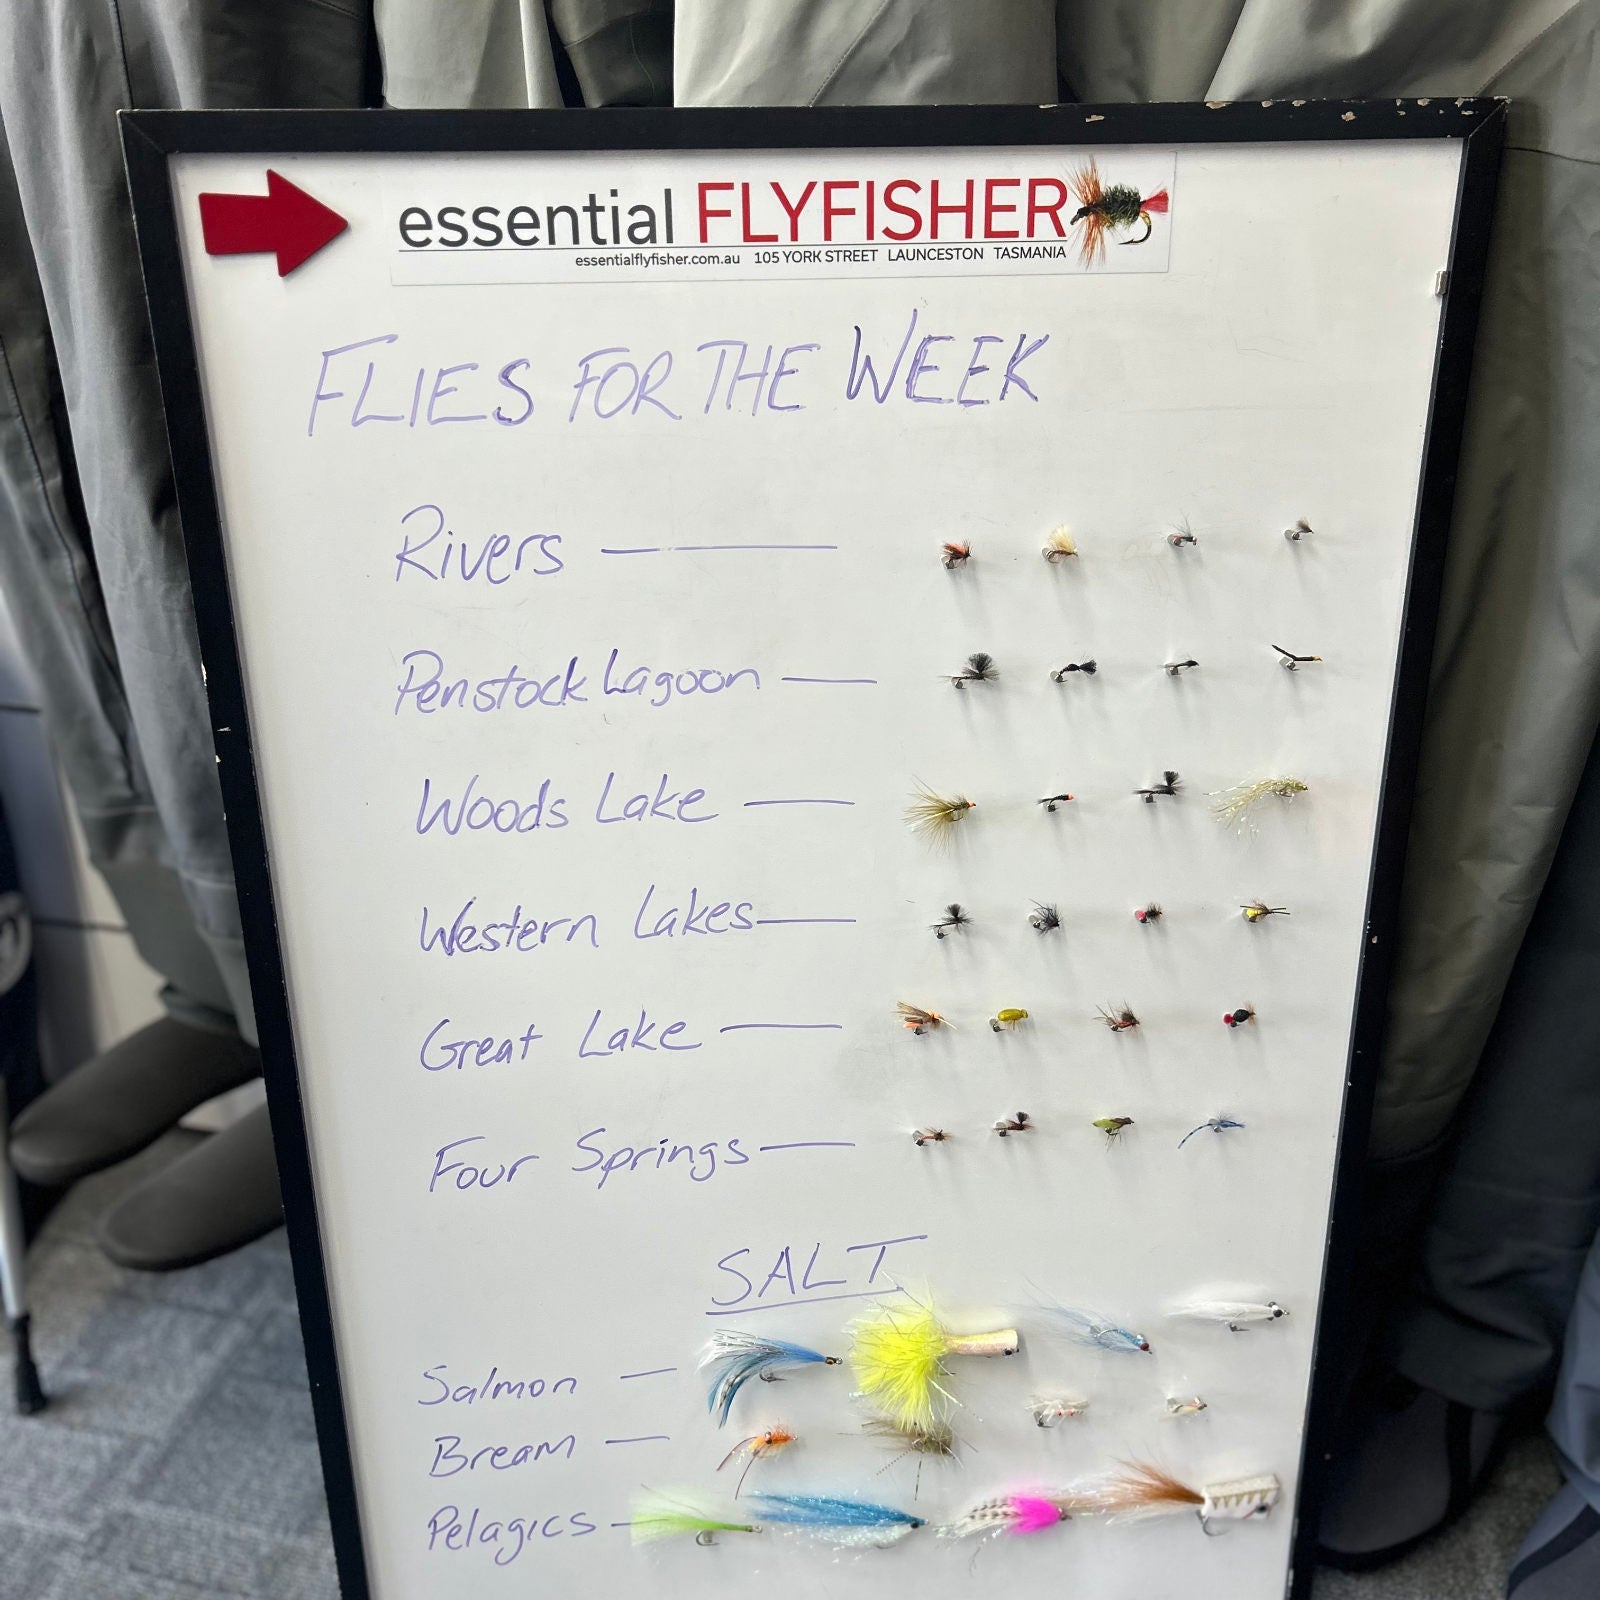 essential FLYFISHER
essentialflyfisher.com.au 105 YORK STREET LAUNCESTON TASMANIA
FLIES FOR THE WEEK
Rivers
Penstock Lagoon
Woods Lake
Western Lakes
Great Lake
Four Springs
SALT
Salmon
Bream
Pelagics